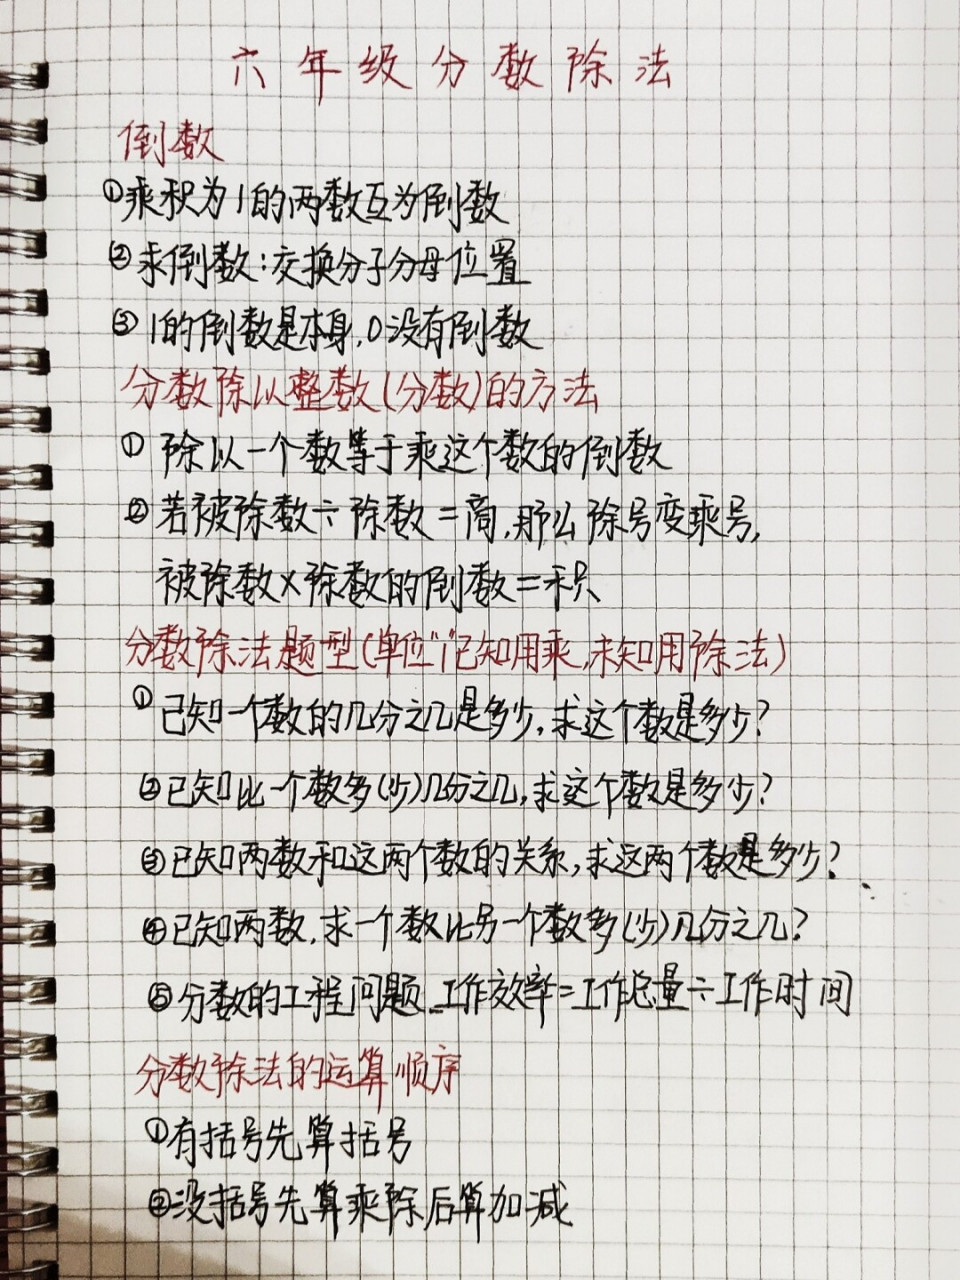 六年级分数除法
倒数
①乘积为1的两数互为倒数
②求倒数:交换分子分母位置
③1的倒数是本身,0没有倒数
分数除以整数(分数)的方法
① 除以一个数等于乘这个数的倒数
②若被除数÷除数=商,那么除号变乘号,
被除数×除数的倒数=积
分数除法题型(单位"1"已知用乘,未知用除法)
①已知一个数的几分之几是多少,求这个数是多少?
②已知比一个数多(少)几分之几,求这个数是多少?
③已知两数和这两个数的关系,求这两个数是多少?
④已知两数,求一个数比另一个数多(少)几分之几?
⑤分数的工程问题_工作效率=工作总量÷工作时间
分数除法的运算顺序
①有括号先算括号
②没括号先算乘除后算加减